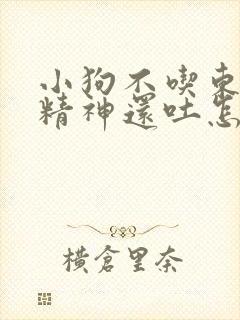 小狗不喫東
精神還吐怎
橫倉里奈